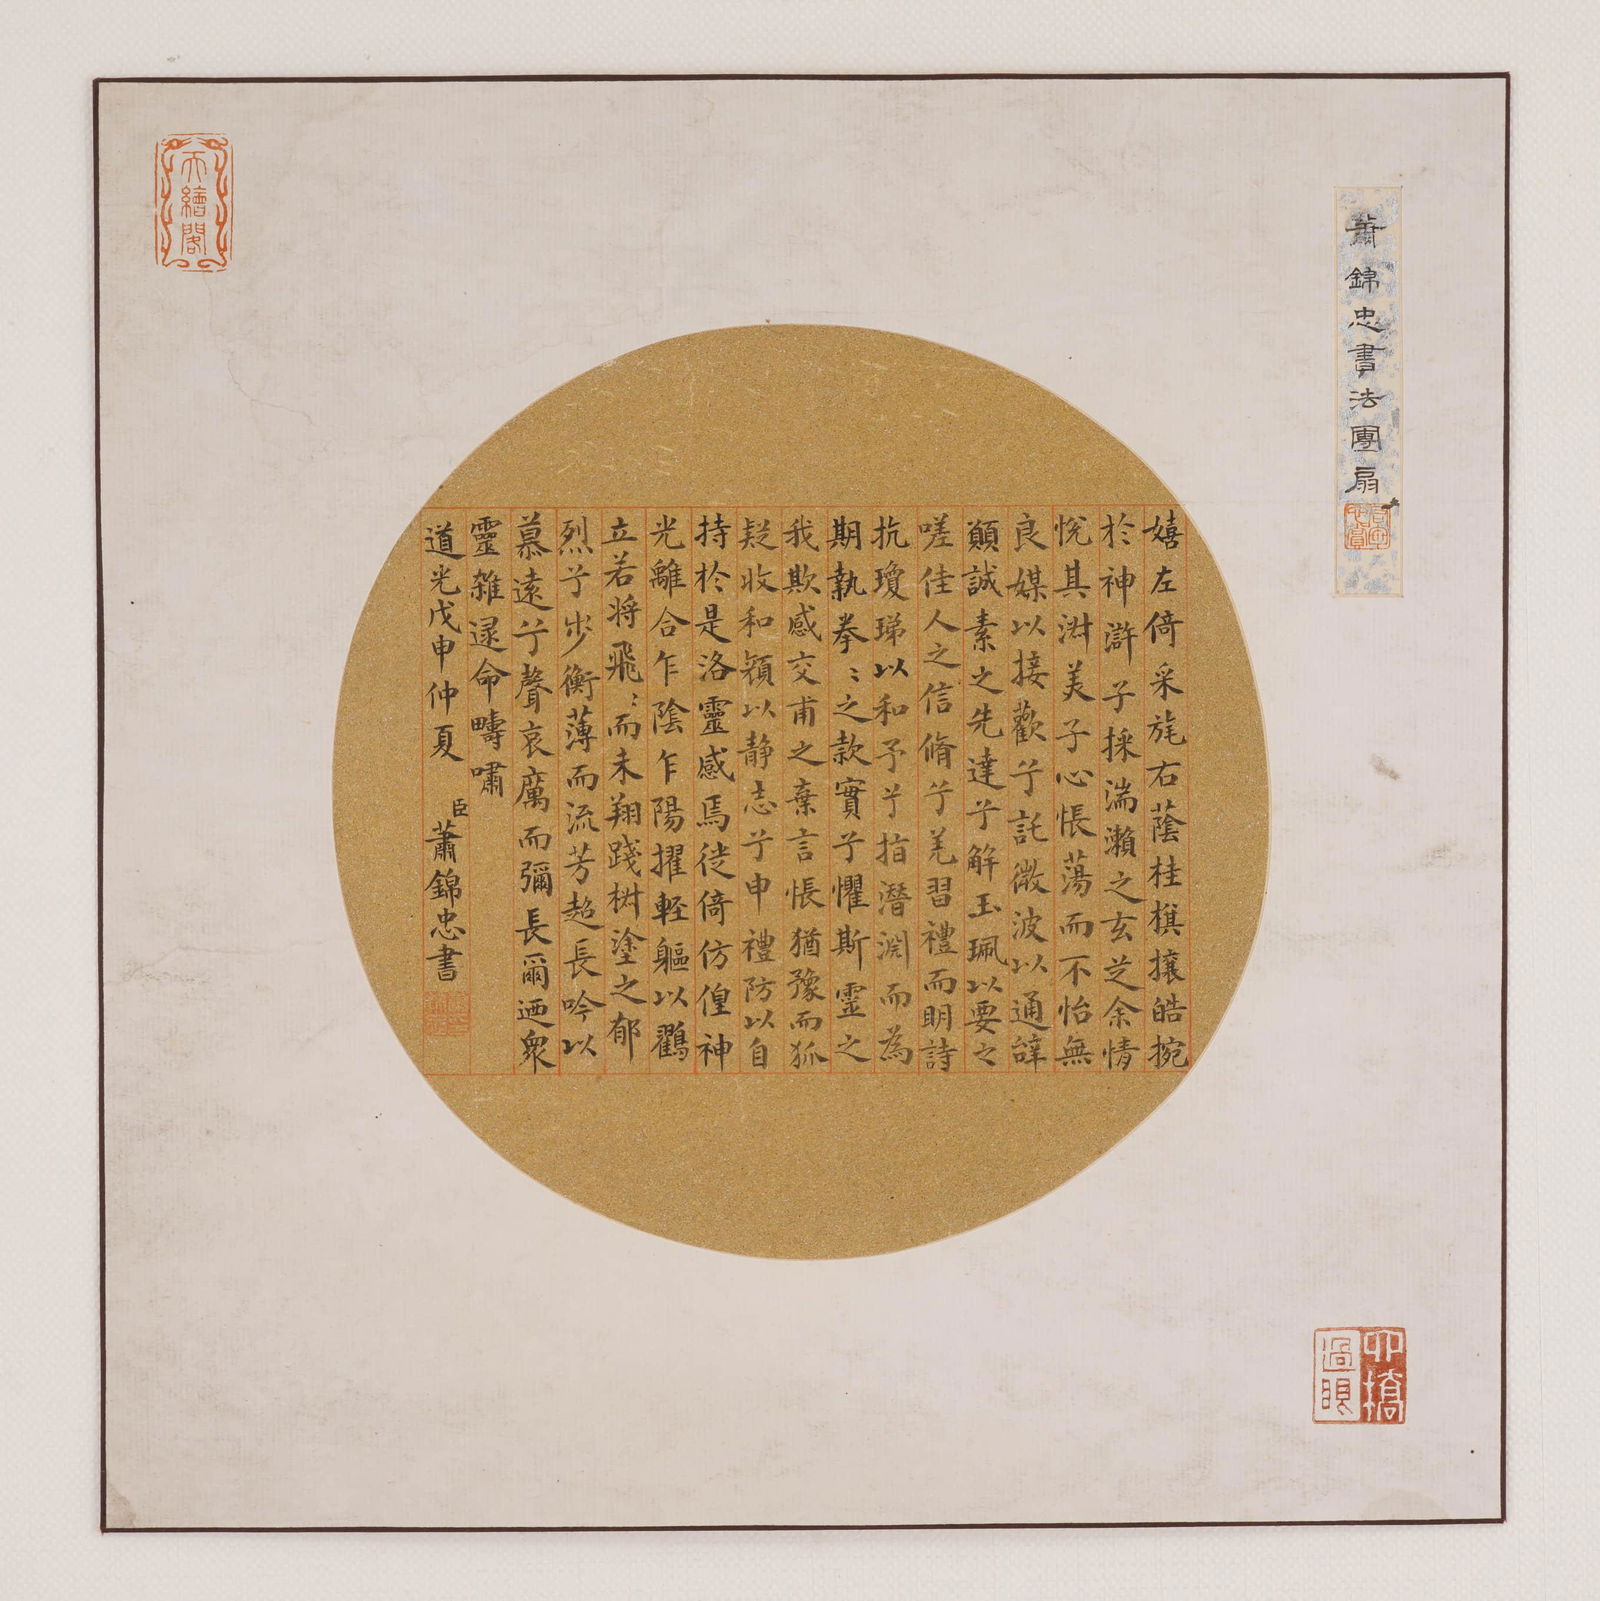 蕭錦忠書法團扇
嬉左倚采旄右蔭桂旗攘皓捥
於神滸子採湍瀨之玄芝余情
悅其淑美子心悵蕩而不怡無
良媒以接歡兮託微波以通辭
顚誠素之先達兮解玉珮以要之
嗟佳人之信脩兮羌習禮而明詩
抗瓊珶以和予兮指潛淵而為
期執拳〻之款實子懼斯靈之
我欺感交甫之棄言悵猶豫而狐
疑收和顏以静志兮申禮防以自
持於是洛靈感焉徙倚仿偟神
光離合乍陰乍陽擢輕軀以鸖
立若將飛〻而未翔踐椒塗之郁
烈兮步衡薄而流芳超長吟以
慕遠兮聲哀厲而彌長爾迺衆
靈雜遝命疇嘯
道光戊申仲夏 臣蕭錦忠書
天繪閣
六橋過眼